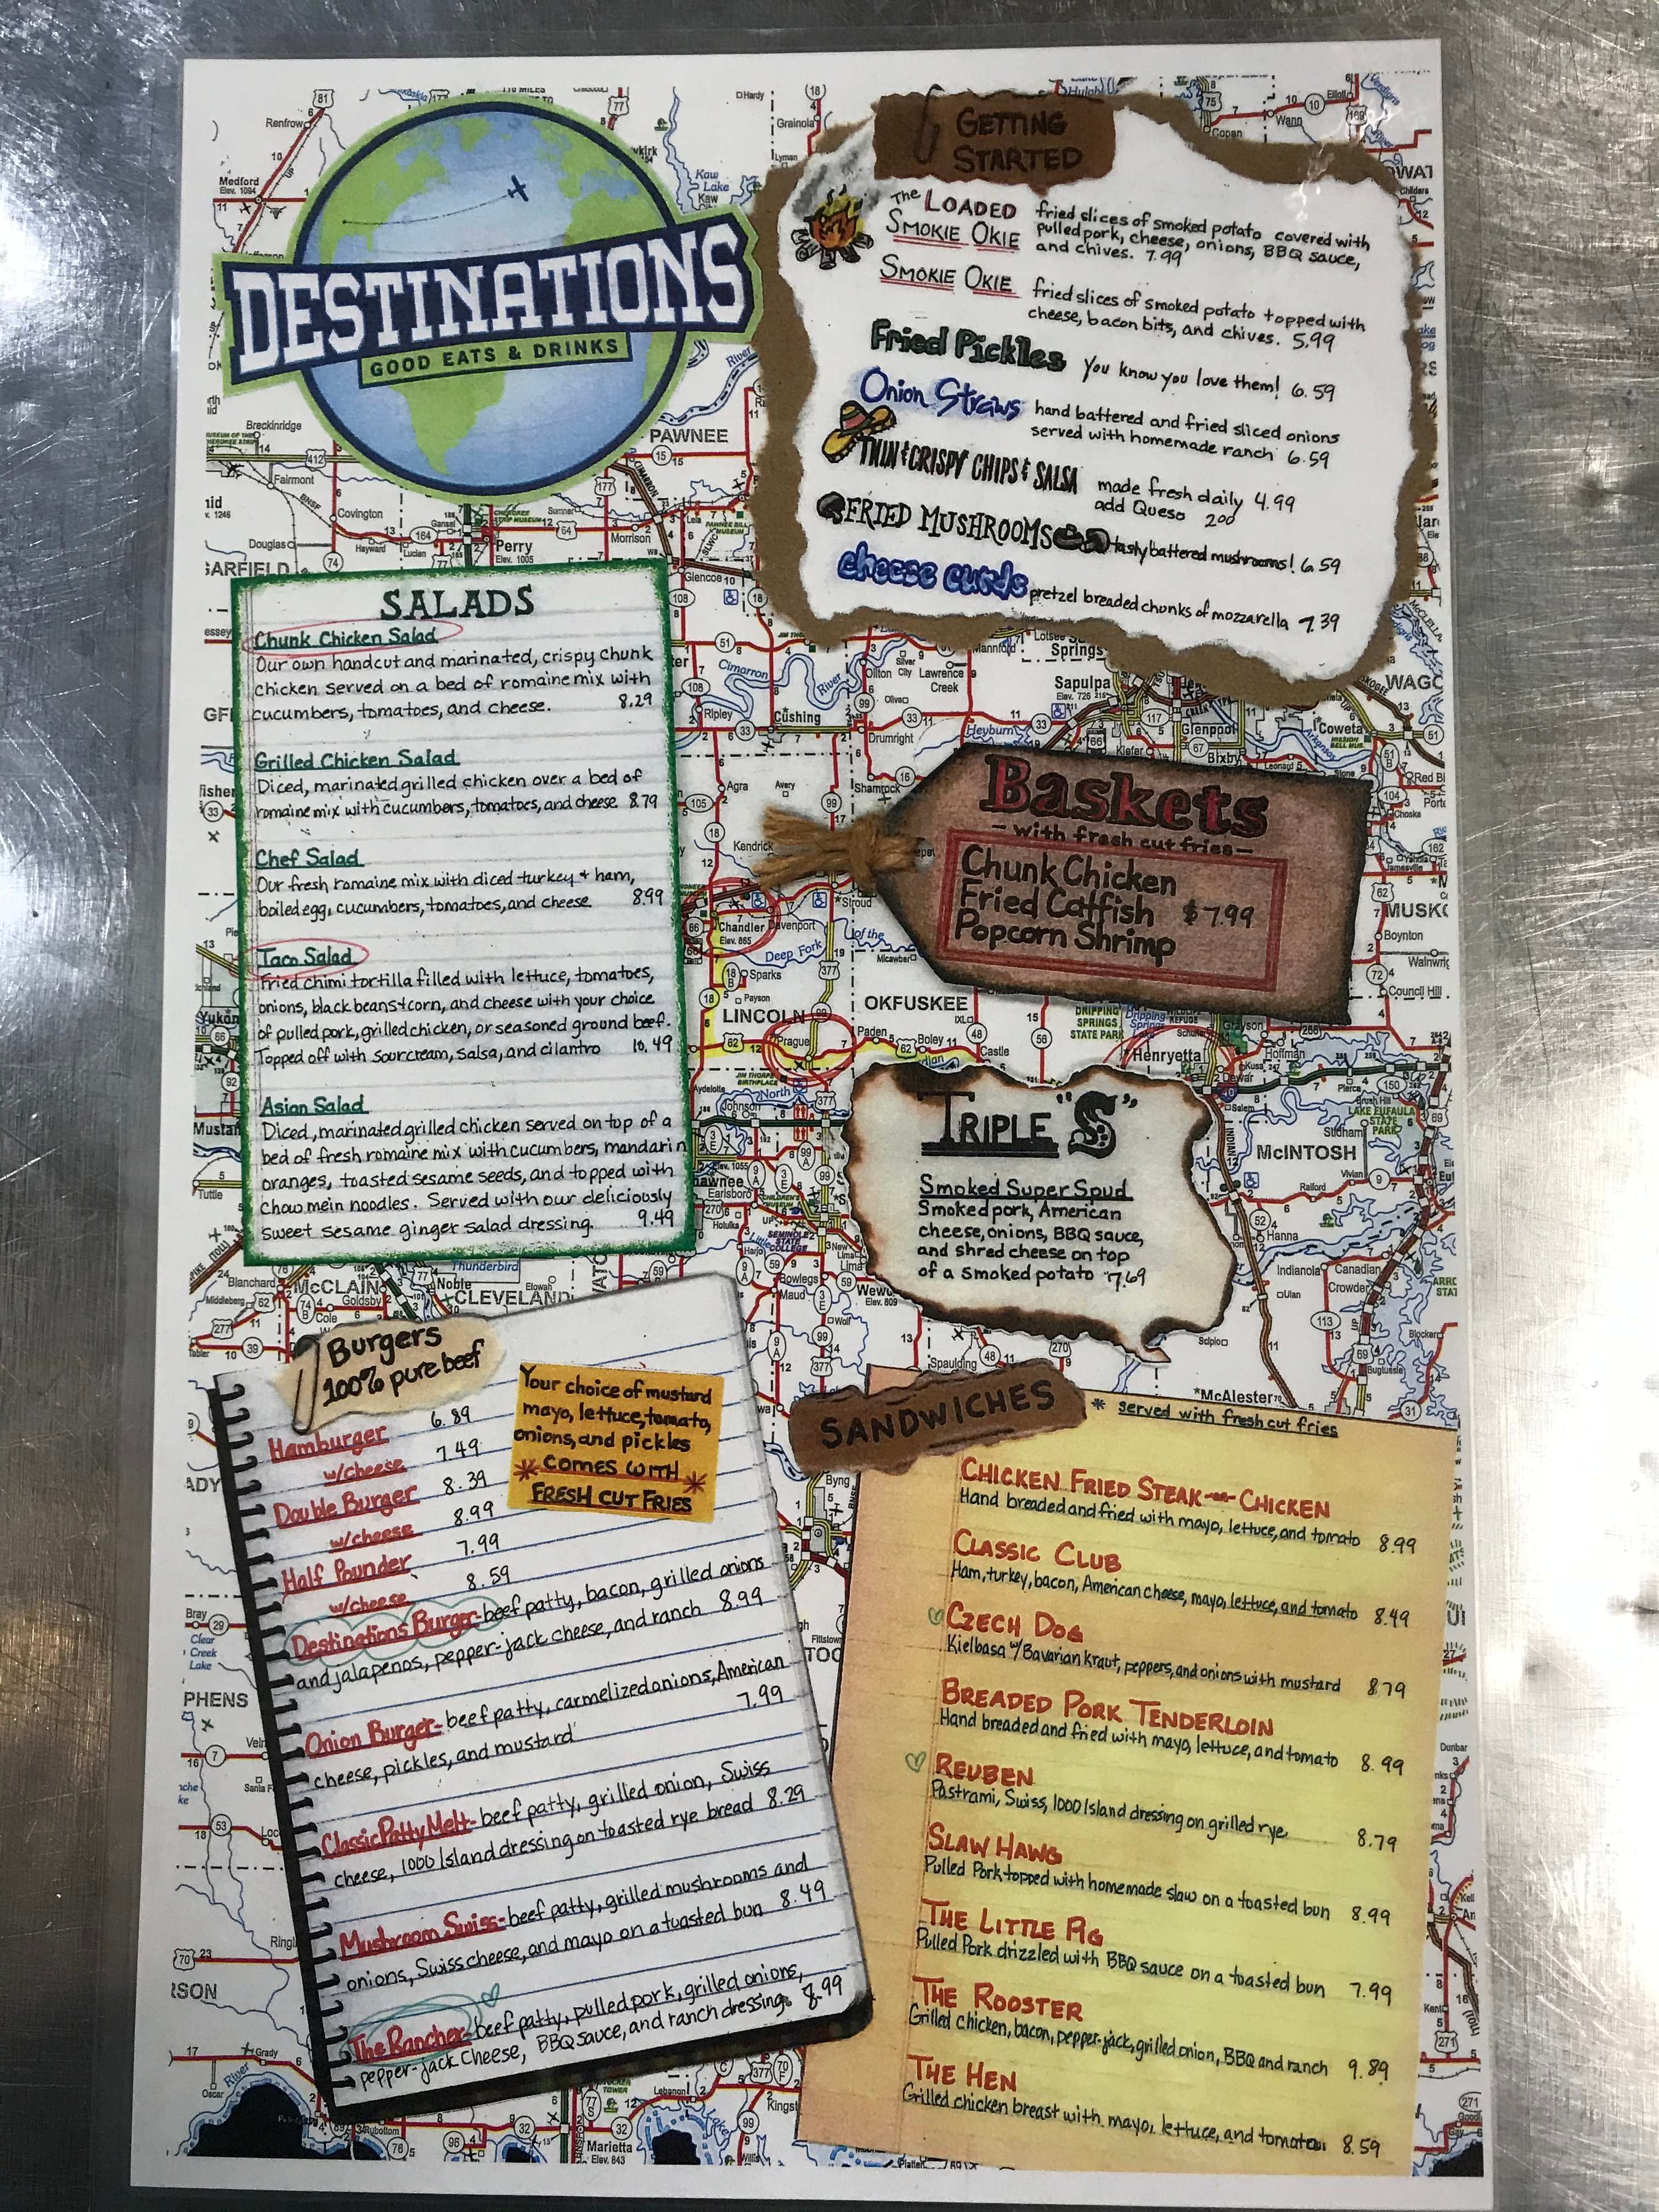 DESTINATIONS
GOOD EATS & DRINKS
GETTING
STARTED
The LOADED
SMOKIE OKIE
fried slices of smoked potato covered with
pulled pork, cheese, onions, BBQ sauce,
and chives. 7.99
SMOKIE OKIE
fried slices of smoked potato topped with
cheese, bacon bits, and chives. 5.99
Fried Pickles you know you love them! 6.59
Onion Straws hand battered and fried sliced onions
served with homemade ranch 6.59
THIN & CRISPY CHIPS & SALSA made fresh daily 4.99
add Queso 2.00
FRIED MUSHROOMS tasty battered mushrooms! 6.59
cheese curds pretzel breaded chunks of mozzarella 7.39
SALADS
Chunk Chicken Salad
Our own handcut and marinated, crispy chunk
chicken served on a bed of romaine mix with
cucumbers, tomatoes, and cheese. 8.29
Grilled Chicken Salad
Diced, marinated grilled chicken over a bed of
romaine mix with cucumbers, tomatoes, and cheese 8.79
Chef Salad
Our fresh romaine mix with diced turkey + ham,
boiled egg, cucumbers, tomatoes, and cheese 8.99
Taco Salad
Fried chimi tortilla filled with lettuce, tomatoes,
onions, black beans + corn, and cheese with your choice
of pulled pork, grilled chicken, or seasoned ground beef.
Topped off with sour cream, salsa, and cilantro 10.49
Asian Salad
Diced, marinated grilled chicken served on top of a
bed of fresh romaine mix with cucumbers, mandarin
oranges, toasted sesame seeds, and topped with
chow mein noodles. Served with our deliciously
sweet sesame ginger salad dressing. 9.49
Baskets
- with fresh cut fries -
Chunk Chicken
Fried Catfish $7.99
Popcorn Shrimp
TRIPLE "S"
Smoked Super Spud
Smoked pork, American
cheese, onions, BBQ sauce,
and shred cheese on top
of a smoked potato 7.69
Burgers
100% pure beef
Your choice of mustard
mayo, lettuce, tomato,
onions, and pickles
* COMES WITH *
FRESH CUT FRIES
Hamburger 6.89
w/cheese 7.49
Double Burger 8.39
w/cheese 8.99
Half Pounder 7.99
w/cheese 8.59
Destinations Burger - beef patty, bacon, grilled onions
and jalapenos, pepper-jack cheese, and ranch 8.99
Onion Burger - beef patty, carmelized onions, American
cheese, pickles, and mustard 7.99
Classic Patty Melt - beef patty, grilled onion, Swiss
cheese, 1000 Island dressing on toasted rye bread 8.29
Mushroom Swiss - beef patty, grilled mushrooms and
onions, Swiss cheese, and mayo on a toasted bun 8.49
The Rancher - beef patty, pulled pork, grilled onions,
pepper-jack cheese, BBQ sauce, and ranch dressing. 8.99
SANDWICHES
* served with fresh cut fries
CHICKEN FRIED STEAK -or- CHICKEN
Hand breaded and fried with mayo, lettuce, and tomato 8.99
CLASSIC CLUB
Ham, turkey, bacon, American cheese, mayo, lettuce, and tomato 8.49
CZECH DOG
Kielbasa w/ Bavarian kraut, peppers, and onions with mustard 8.79
BREADED PORK TENDERLOIN
Hand breaded and fried with mayo, lettuce, and tomato 8.99
REUBEN
Pastrami, Swiss, 1000 Island dressing on grilled rye 8.79
SLAW HAWG
Pulled Pork topped with homemade slaw on a toasted bun 8.99
THE LITTLE PIG
Pulled Pork drizzled with BBQ sauce on a toasted bun 7.99
THE ROOSTER
Grilled chicken, bacon, pepper-jack, grilled onion, BBQ and ranch 9.89
THE HEN
Grilled chicken breast with mayo, lettuce, and tomato 8.59
Renfrow
Medford
Grainola
Hardy
Copan
Wann
Breckinridge
Fairmont
Covington
Douglas
Perry
Morrison
PAWNEE
Glencoe
Ripley
Cushing
Drumright
Sapulpa
Glenpool
Bixby
Coweta
Agra
Avery
Kendrick
Shamrock
Stroud
Chandler
Davenport
Sparks
Payson
LINCOLN
Prague
Paden
Boley
Castle
OKFUSKEE
Henryetta
Hoffman
Council Hill
Boynton
McINTOSH
Hanna
Indianola
Canadian
Crowder
Tuttle
Blanchard
McCLAIN
Goldsby
Noble
CLEVELAND
Bowlegs
Maud
Spaulding
McAlester
Byng
Bray
Marietta
Lebanon
Grady
Oscar
Rubottom